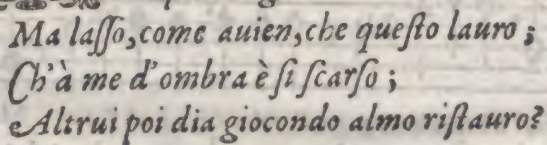 Ma laſſo, come auien, che queſto lauro;
Ch'à me d'ombra è ſi ſcarſo;
Altrui poi dia giocondo almo riſtauro?